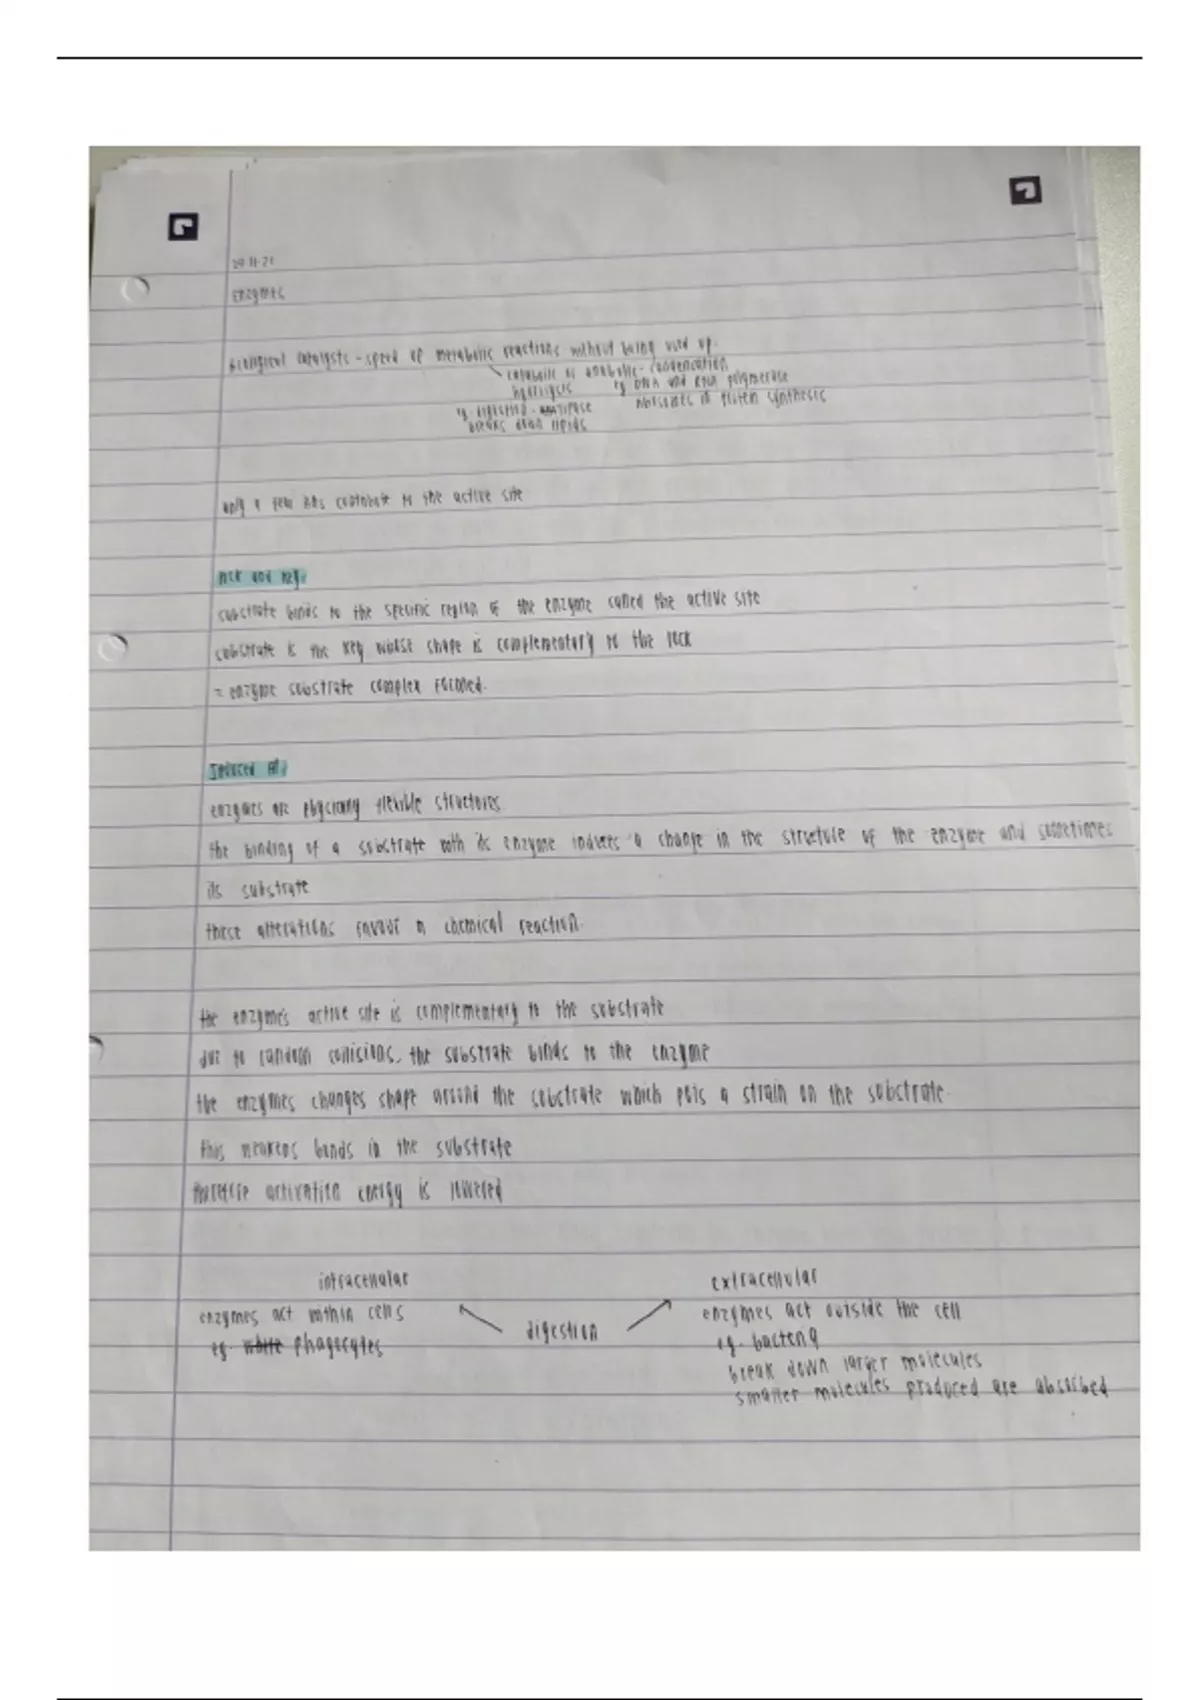 enzymes
biological catalysts - speed up metabolic reactions without being used up.
catabolic or anabolic - condensation
hydrolysis eg DNA and RNA polymerase
eg. digestion - lipase in protein synthesis
breaks down lipids
only a few AAs contribute to the active site
lock and key.
substrate binds to the specific region of the enzyme called the active site
substrate is the key whose shape is complementary to the lock
= enzyme substrate complex formed.
Induced fit.
enzymes are physically flexible structures.
the binding of a substrate with its enzyme induces a change in the structure of the enzyme and sometimes
its substrate
these alterations favour a chemical reaction.
the enzyme's active site is complementary to the substrate
due to random collisions, the substrate binds to the enzyme
the enzymes changes shape around the substrate which puts a strain on the substrate.
this weakens bonds in the substrate
therefore activation energy is lowered
intracellular extracellular
enzymes act within cells digestion enzymes act outside the cell
eg. white phagocytes eg. bacteria
break down larger molecules
smaller molecules produced are absorbed